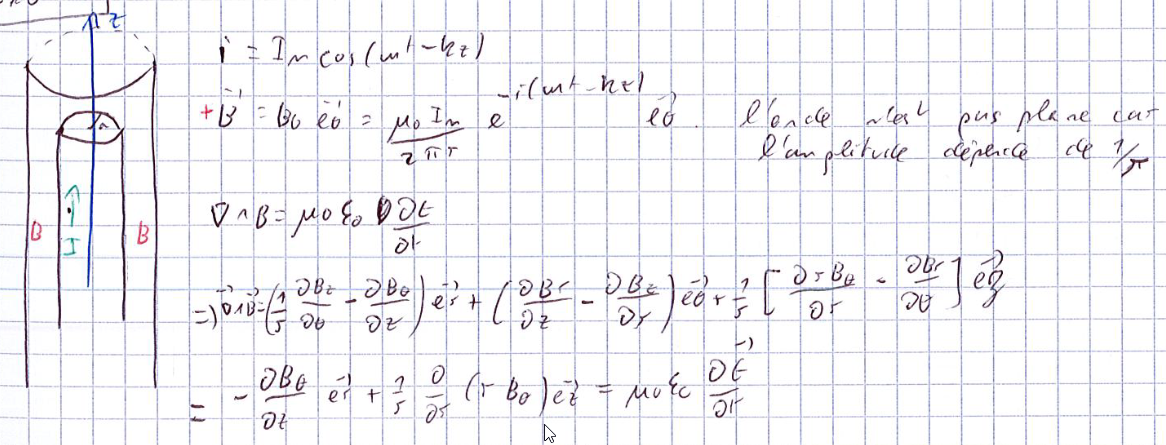 z
i = Im cos(ωt - kz)
+ B⃗ = Bθ e⃗θ = μ0 Im / 2πr e^-i(ωt - kz) e⃗θ. l'onde n'est pas plane car
l'amplitude dépend de 1/r
r
∇∧B = μ0 ε0 ∂E/∂t
B I B
=> ∇⃗∧B⃗ = (1/r ∂Bz/∂θ - ∂Bθ/∂z) e⃗r + (∂Br/∂z - ∂Bz/∂r) e⃗θ + 1/r [∂rBθ/∂r - ∂Br/∂θ] e⃗z
= - ∂Bθ/∂z e⃗r + 1/r ∂/∂r (r Bθ) e⃗z = μ0 ε0 ∂E⃗/∂t